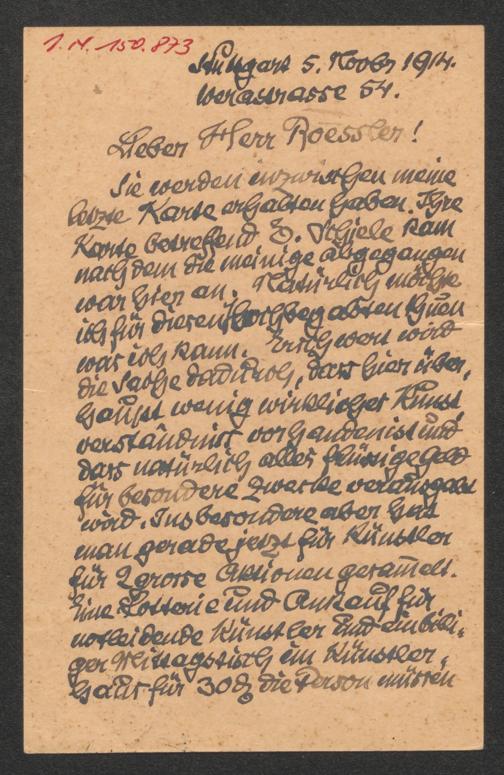 I.N. 150.873
Stuttgart 5. Novbr 1914.
Werastrasse 54.
Lieber Herr Roessler!
Sie werden inzwischen meine
letzte Karte erhalten haben. Ihre
Karte betreffend E. Schiele kam
nachdem die meinige abgegangen
war hier an. Natürlich möchte
ich für diesen Hochbegabten thuen
was ich kann. Erschwert wird
die Sache dadurch, dass hier über,
haupt wenig wirkliches Kunst,
verständniss vorhanden ist und
dass natürlich alles flüssige Geld
für besondere Zwecke verausgabt
wird. Insbesondere aber hat
man gerade jetzt für Künstler
für 2 grosse Aktionen gesam̄elt.
Eine Lotterie und Ankauf für
notleidende Künstler und ein billi,
ger Mittagstisch im Künstler,
haus für 30 ₰ die Person müssen